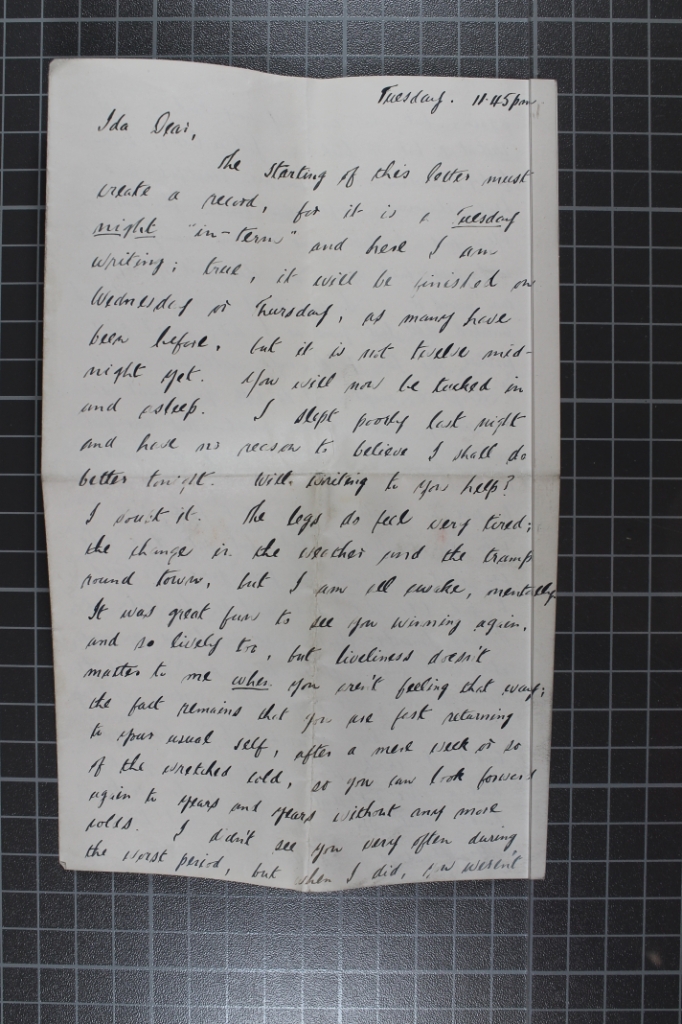 Tuesday. 11.45pm
Ida Dear,
the starting of this letter must
create a record, for it is a Tuesday
night "in-term" and here I am
writing; true, it will be finished on
Wednesday or Thursday, as many have
been before, but it is not twelve mid-
night yet. You will now be tucked in
and asleep. I slept poorly last night
and have no reason to believe I shall do
better tonight. Will writing to you help?
I doubt it. The legs do feel very tired;
the change in the weather and the tramp
round town, but I am all awake, mentally
It was great fun to see you winning again,
and so lively too, but liveliness doesn't
matter to me when you aren't feeling that way;
the fact remains that you are fast returning
to your usual self, after a mere week or so
of the wretched cold, so you can look forward
again to years and years without any more
colds. I didn't see you very often during
the worst period, but when I did, you weren't